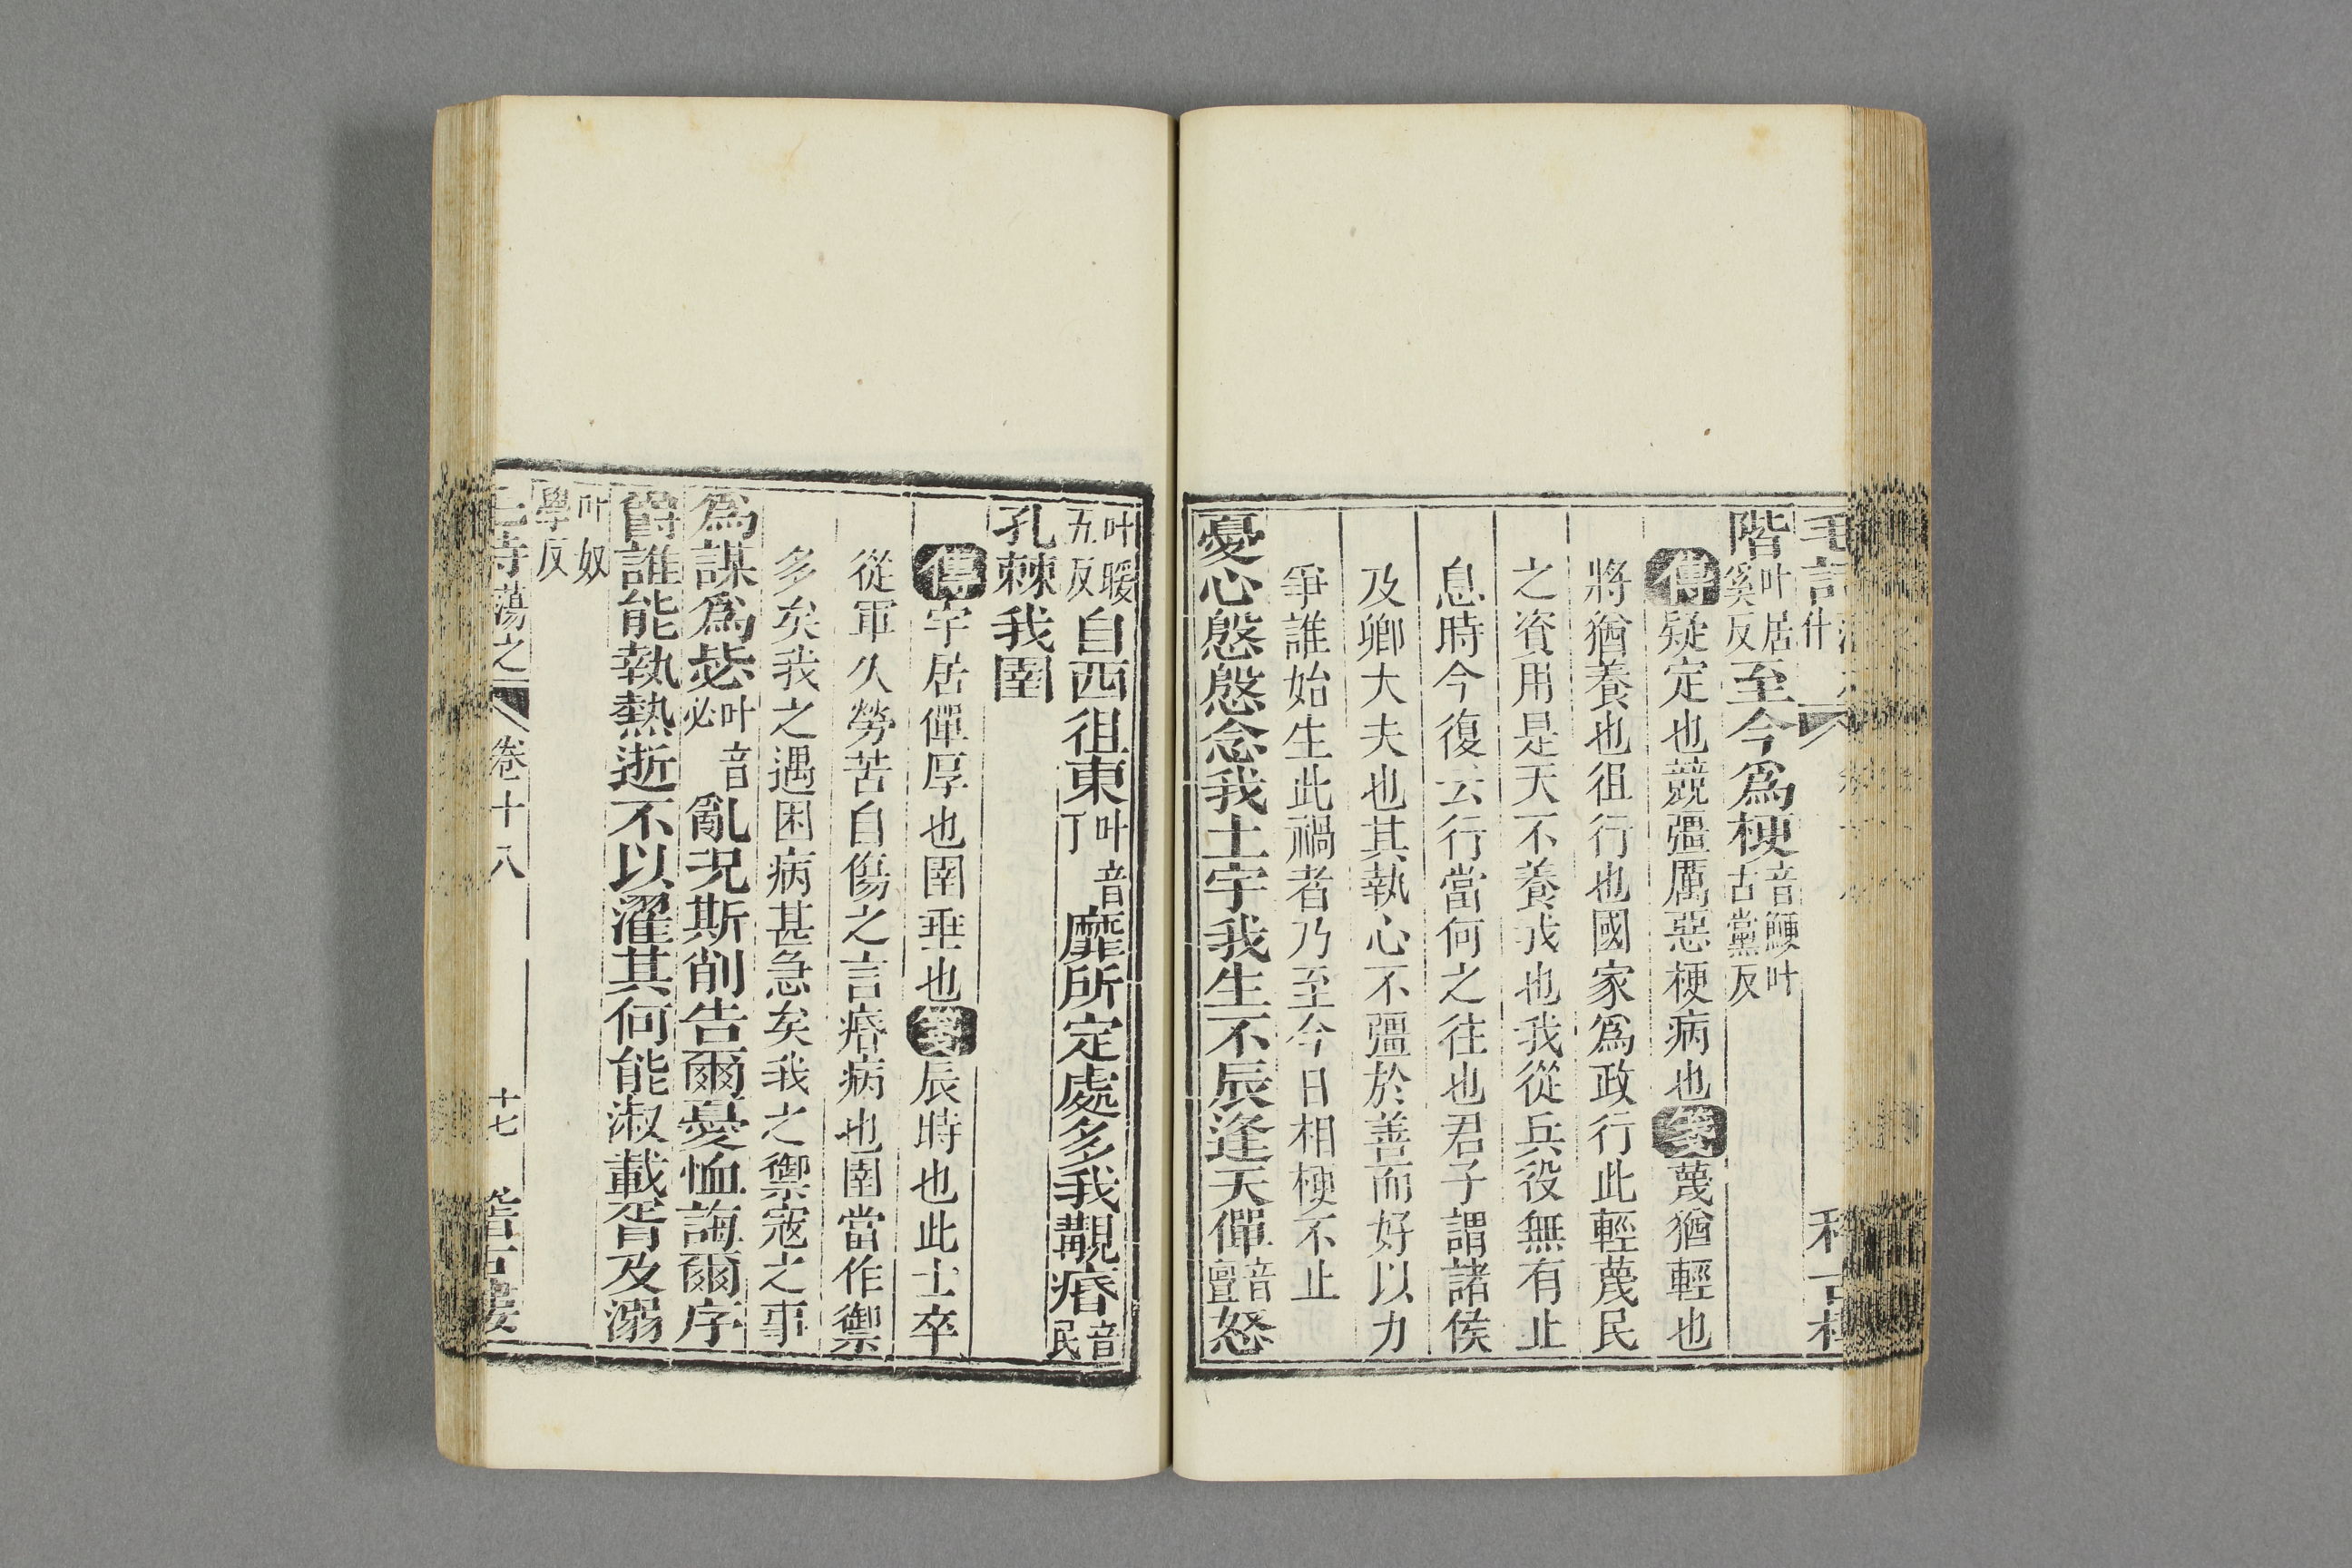 階叶居奚反至今爲梗音鯁叶古黨反
傳疑定也競彊厲惡梗病也箋蔑猶輕也
將猶養也徂行也國家爲政行此輕蔑民
之資用是天不養我也我從兵役無有止
息時今復云行當何之往也君子謂諸侯
及卿大夫也其執心不彊於善而好以力
爭誰始生此禍者乃至今日相梗不止
憂心慇慇念我土宇我生不辰逢天僤音亶怒
叶暖五反自西徂東叶音丁靡所定處多我覯痻音民
孔棘我圉
傳宇居僤厚也圉垂也箋辰時也此士卒
從軍久勞苦自傷之言痻病也圉當作禦
多矣我之遇困病甚急矣我之禦寇之事
爲謀爲毖叶音必亂況斯削告爾憂恤誨爾序
爵誰能執熱逝不以濯其何能淑載胥及溺
叶奴學反
毛詩蕩之 卷十八 十七 稽古樓